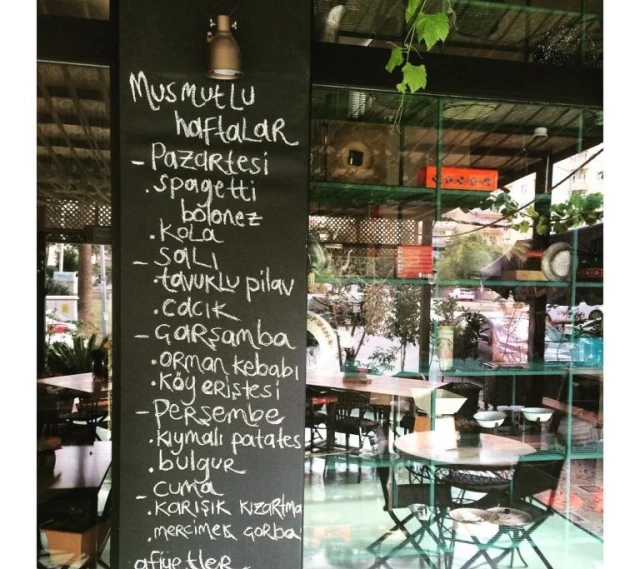 Musmutlu
haftalar
- Pazartesi
. spagetti
bolonez
. Kola
- Salı
. tavuklu pilav
. cacık
- Çarşamba
. orman kebabı
. köy eriştesi
- Perşembe
. kıymalı patates
. bulgur
- cuma
. karışık kızartma
. mercimek çorba
afiyetler